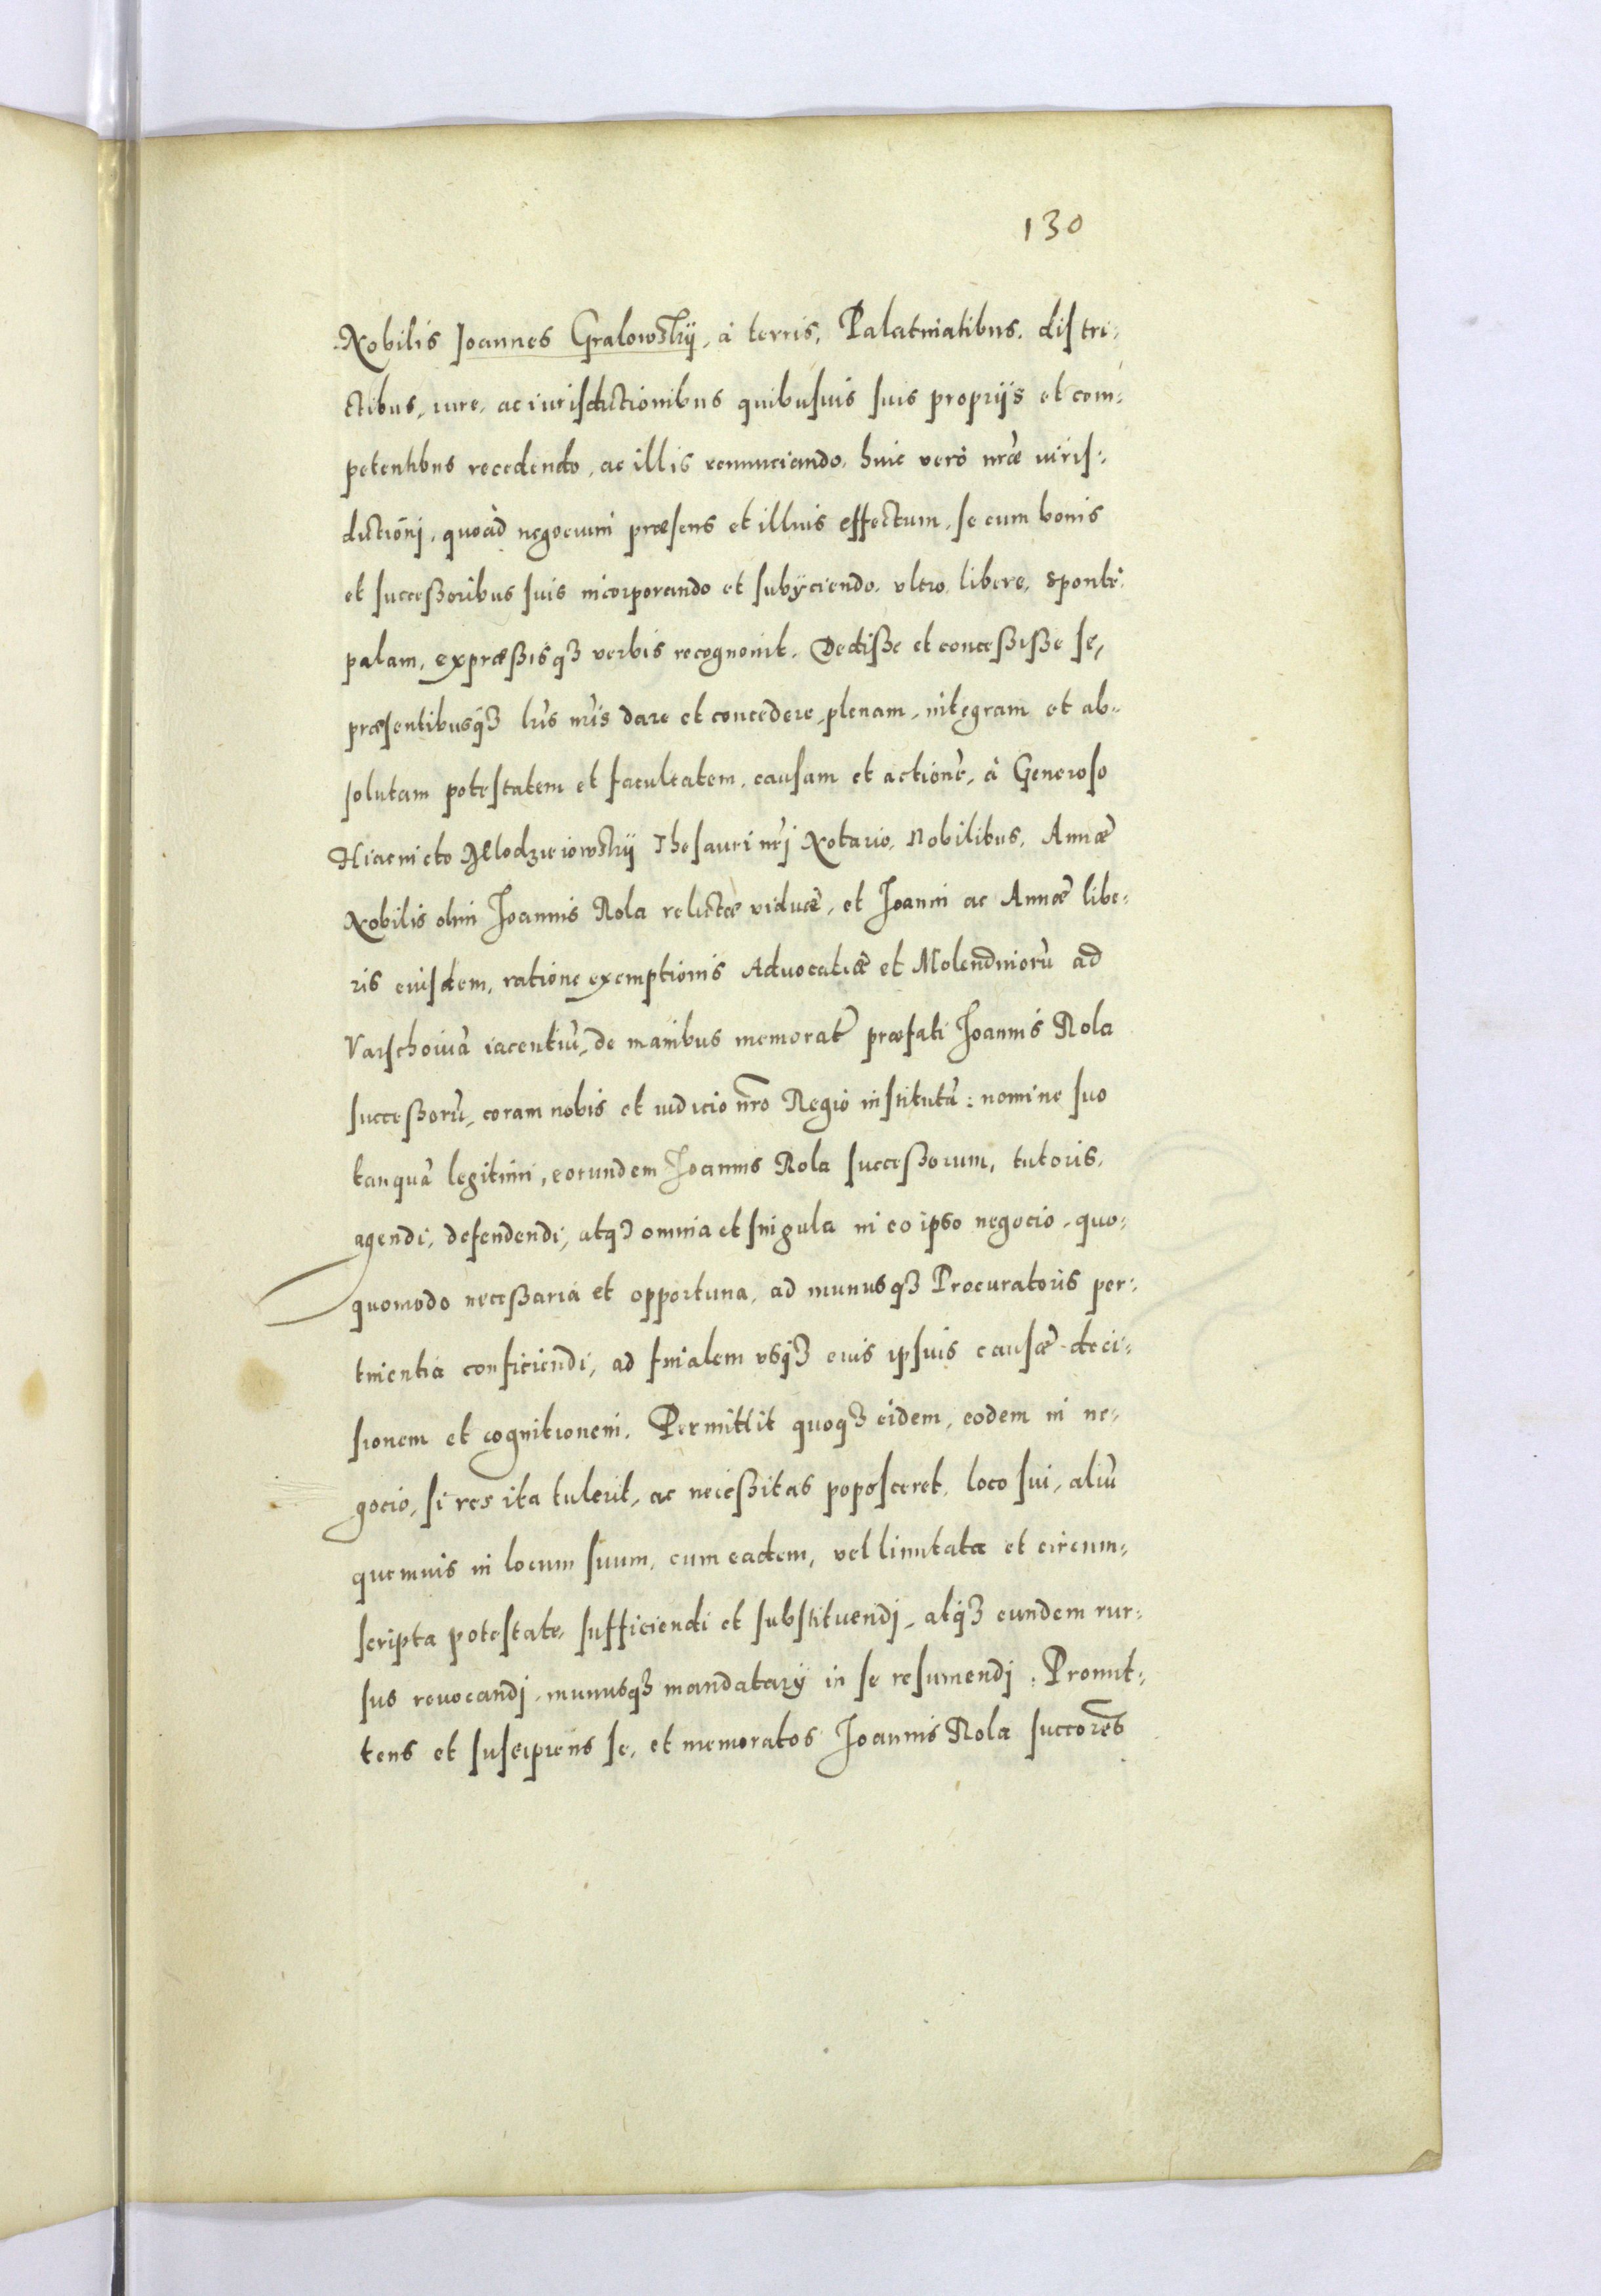 130
Nobilis Joannes Gralowskij, à terris, Palatinatibus, distri-
ctibus, iure, ac iurisdictionibus quibusuis suis proprijs et com-
petentibus recedendo, ac illis renunciando, huic verò nr̃æ iuris-
dictiõnj, quoàd negocium præsens et illius effectum, se cum bonis
et successoribus suis incorporando et subijciendo, vltro, libere, sponte,
palam, expræssisqꝫ verbis recognouit. Dedisse et concessisse se,
præsentibusqꝫ lr̃is nr̃is dare et concedere, plenam, integram et ab-
solutam potestatem et facultatem, causam et actionẽ, à Generoso
Hiacincto Mlodzieiowskij Thesauri nr̃j Notario, Nobilibus, Annæ
Nobilis olim Joannis Rola relictæ viduæ, et Joanni ac Annæ libe-
ris eiusdem, ratione exemptionis Aduocatiæ et Molendinorũ ad
Varschouiã iacentiũ, de manibus memorat̃ præfati Joannis Rola
successorũ, coram nobis et iudicio nr̃o Regio institutã: nomine suo
tanquã legitimi, eorundem Joannis Rola successorum, tutoris,
agendi, defendendi, atqꝫ omnia et singula in eo ipso negocio, quo-
quomodo necessaria et opportuna, ad munusqꝫ Procuratoris per-
tinentia conficiendi, ad finalem vsqꝫ eius ipsius causæ deci-
sionem et cognitionem. Permittit quoqꝫ eidem, eodem in ne-
gocio, si res ita tulerit, ac necessitas poposceret, loco sui, aliũ
quemuis in locum suum, cum eadem, vel limitata et circum-
scripta potestate, sufficiendi et substituendj, atqꝫ eundem rur-
sus reuocandj, munusqꝫ mandatarij in se resumendj: Promit-
tens et suscipiens se, et memoratos Joannis Rola succores̃